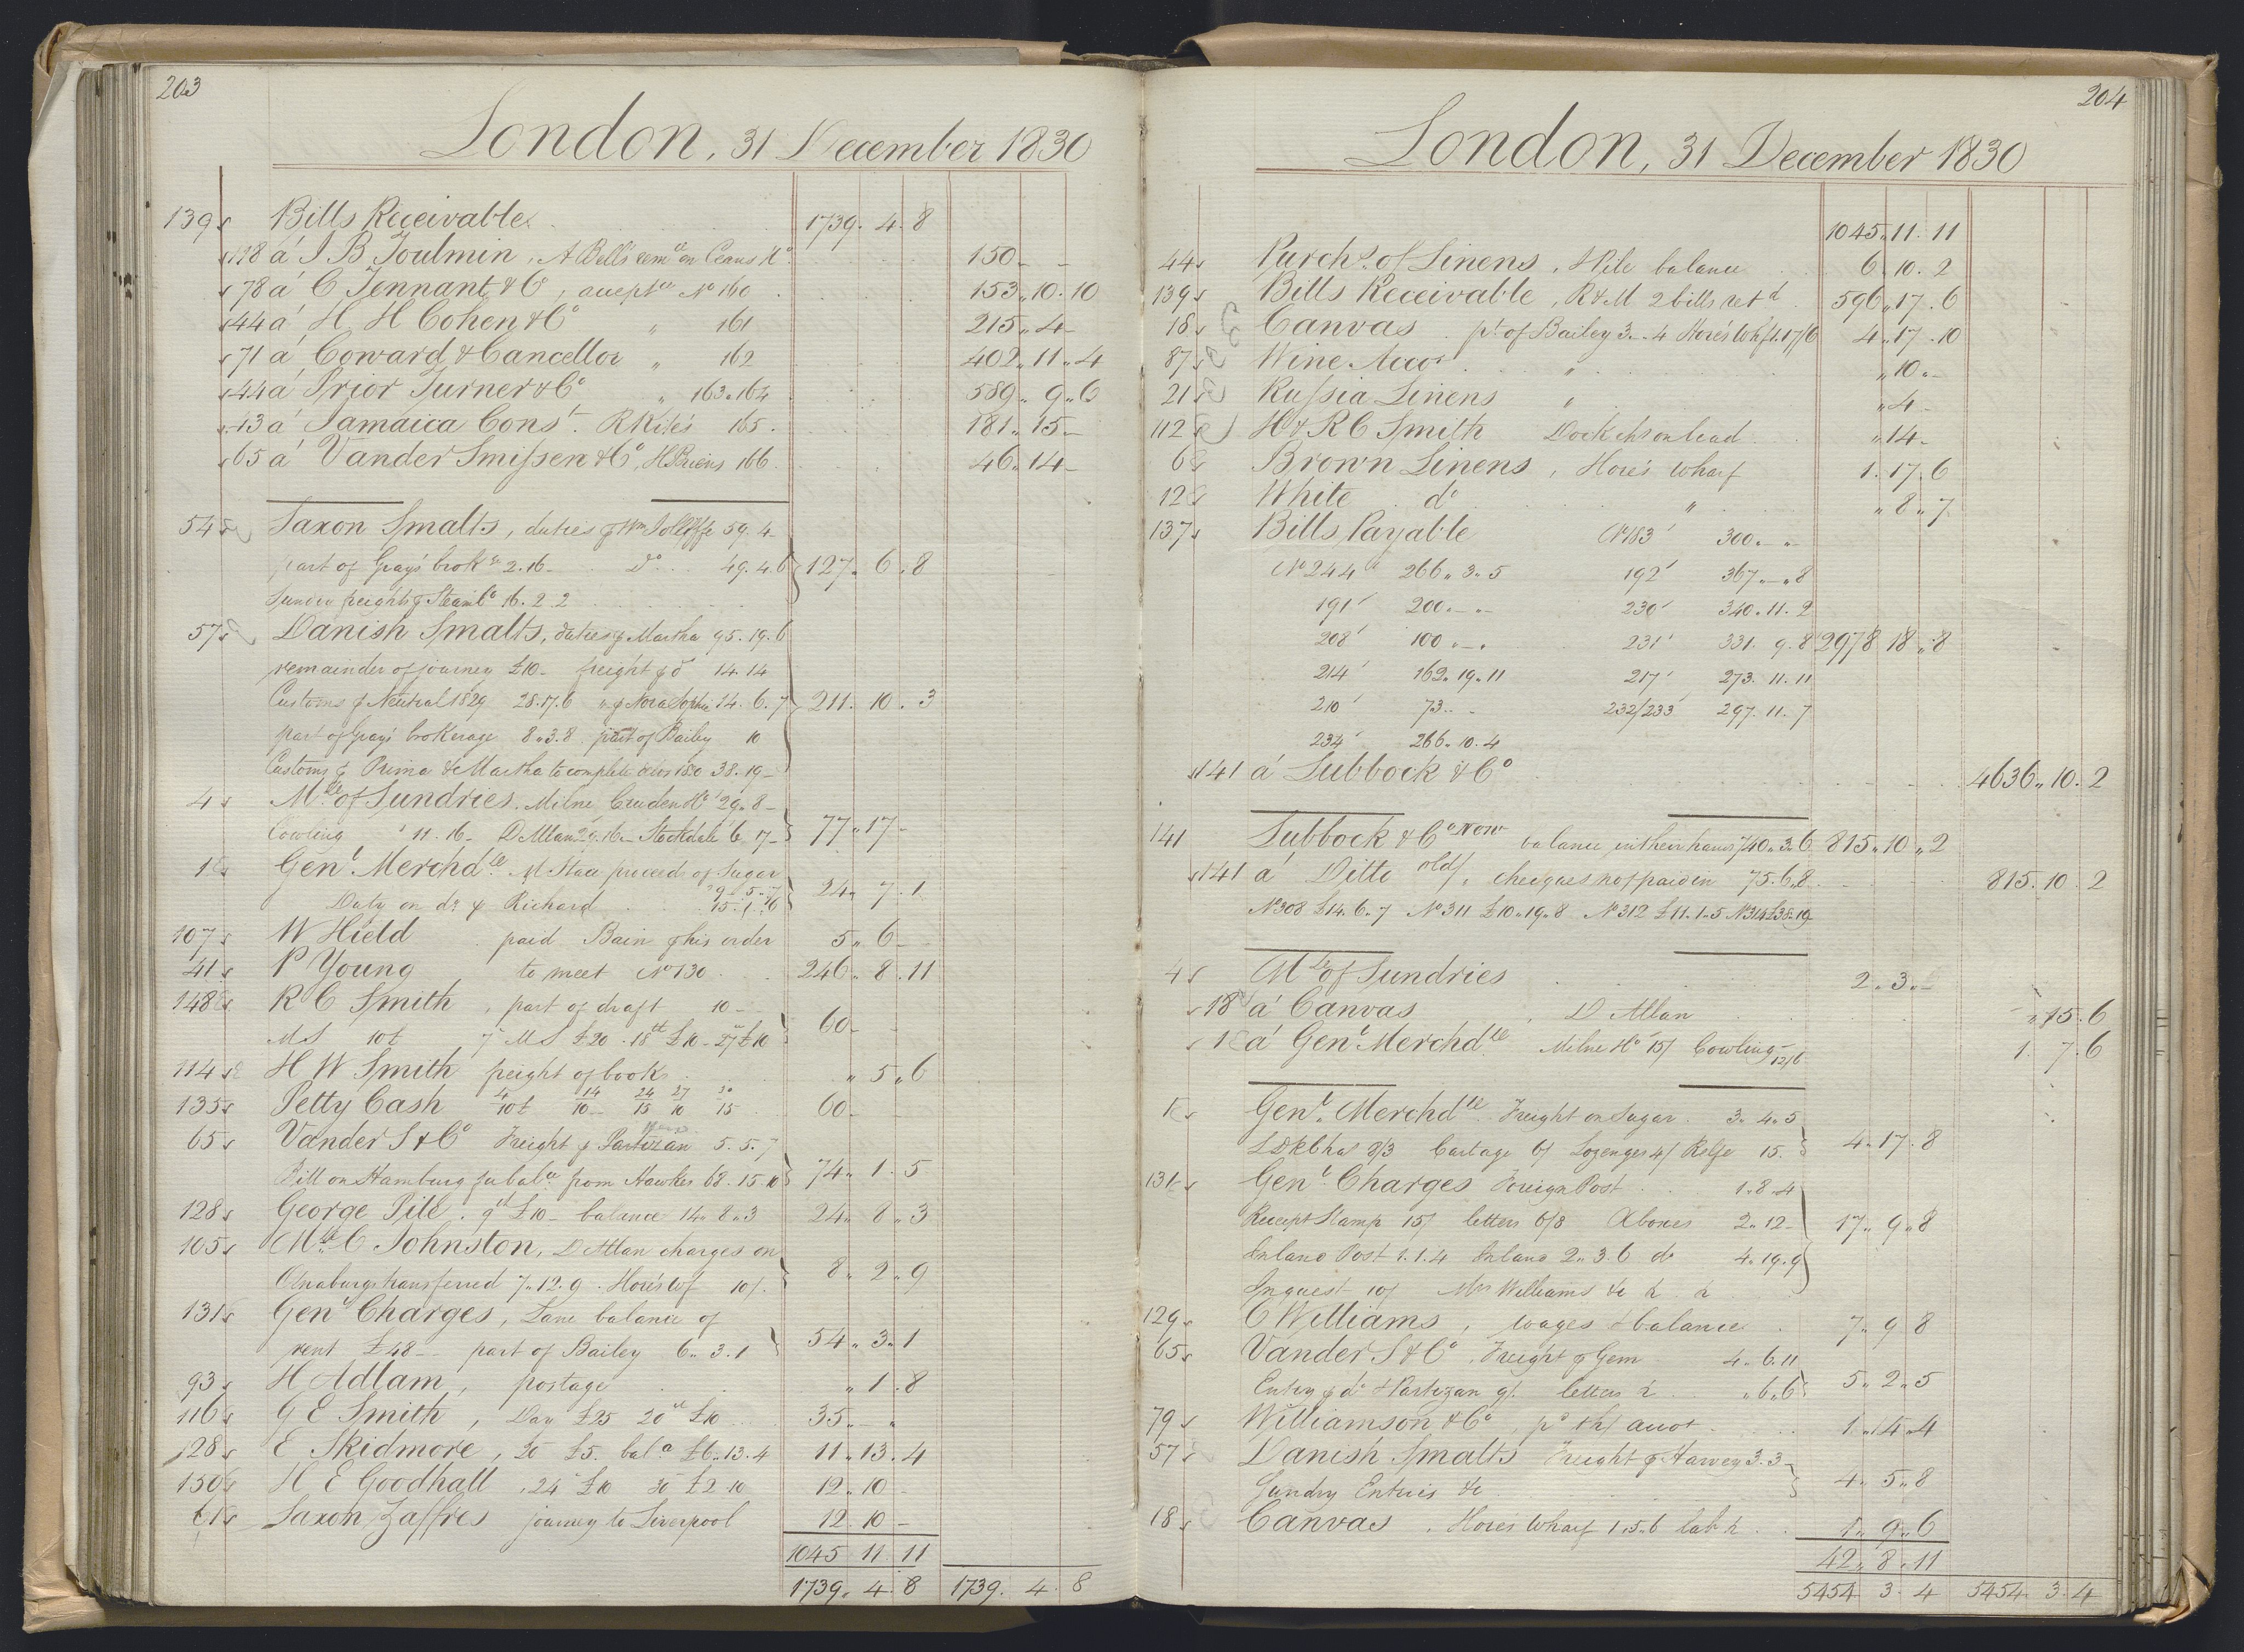 203
London, 31 December 1830
139 Bills Receivable 1739. 4. 8
118 a' J B Toulmin, A Bell's rem ce on Ceaus H o. 150 - -
78 a' C Tennant & Co, accept ce No 160 153. 10. 10
44 a' H H Cohen & Co " 161 215. 4 -
71 a' Coward & Cancellor " 162 402. 11. 4
44 a' Prior Turner & Co " 163. 164 589. 9. 6
43 a' Jamaica Cons t. R Kite's 165. 181. 15 -
65 a' Vander Smissen & Co, H Briens 166. 46. 14 -
54 Saxon Smalts, duties Wm Jolliffe 59. 4 -
part of Grays' brok ge 2. 16 - Do 49. 4. 6 127. 6. 8
Sundry freights Steam Co 16. 2. 2
57 Danish Smalts, duties Martha 95. 19. 6
remainder of journey £10 - freight do 14. 14
Customs Neutral 1829 28. 17. 6 " Nora Sophia 14. 6. 7 211. 10. 3
part of Grays' brokerage 8. 3. 8 part of Bailey 10
Customs Prima & Martha to complete 38. 19 -
4 M dle of Sundries. Milne, Cruden & Co 29. 8 -
Cowling " 11. 16 - D Allan 29. 16 - Stockdale 6. 17 - 77. 17 -
1 Gen l Merchd ze. M Stace proceeds of Sugar 9. 5. 7
Duty on do Richard 15. 1. 6 24. 7. 1
107 W Hield paid Bain his order 5. 6 -
41 P Young to meet No 130 246. 8. 11
148 R C Smith, part of draft 10 - -
MS 10t 7 MS £20. 18th £10 - 27 £10 60 - -
114 H W Smith freight of books " 5. 6
135 Petty Cash 4/10t 14/10 - 24/15 27/10 30/15 60 - -
65 Vander S & Co Freight Partizan 5. 5. 7
Bill on Hamburg for bal ce from Hawkes 68. 15. 10 74. 1. 5
128 George Pile. 9th £10 - balance 14. 8. 3 24. 8. 3
105 M dle C Johnston, D Allan charges on
Osnaburgs transferred 7. 12. 9. Hore's Wf 10/. 8. 2. 9
131 Gen l Charges, Lane balance of
rent £48 - part of Bailey 6. 3. 1 54. 3. 1
93 H Adlam, postage " 1. 8
116 G E Smith, Day £25 20th £10 35. - "
128 E Skidmore, 20 £5. bal ce £6. 13. 4 11. 13. 4
150 H E Goodhall, 24 £10 30 £2. 10 12. 10 -
61 Saxon Zaffres journey to Liverpool 12. 10 -
1045 11. 11
1739. 4. 8 1739. 4. 8
204
London, 31 December 1830
1045. 11. 11
44 Purch s. of Linens, H Pile balance 6. 10. 2
139 Bills Receivable, R & M 2 bills ret d 596. 17. 6
18 Canvas pt. of Bailey 3. - . 4 Hore's Whf 1. 17/6 4. 17. 10
87 Wine Acco t " " 10. -
21 Russia Linens " " 4 -
112 H & R C Smith Dock chs on lead " 14 -
6 Brown Linens, Hore's Wharf 1. 17. 6
12 White do " " 8. 7
137 Bills Payable No 183 300. - " -
No 244 266. 3. 5 192 367. - . 8
191 200. - " - 230 340. 11. 2
208 100. - . 231 331. 9. 8 2978 18. 8
214 162. 19. 11 217 273. 11. 11
210 73. . - 232/233 297. 11. 7
234 266. 10. 4
141 a' Lubbock & Co 4636. 10. 2
141 Lubbock & Co New balance in their hands 740. 3. 6 815. 10. 2
141 a' Ditto old, cheques not paid in 75. 6. 8 815. 10. 2
No 308 £14. 6. 7 No 311 £10. 19. 8 No 312 £11. 1. 5 No 314 £38. 19
4 M dle of Sundries 2. 3. -
18 a' Canvas, D Allan " 15. 6
1 a' Gen l Merchd ze Milne & Co 15/ Cowling 12/6 1. 7. 6
1 Gen l. Merchd ze. Freight on Sugar 3. 4. 5
LDK Chas 2/3 Cartage 6/ Lozenges 4/ Relfe 15. 4. 17. 8
131 Gen l. Charges Foreign Post 1. 8. 4
Receipt Stamp 15/ letters 6/8 Aboves 2. 12 - 17. 9. 8
Inland Post 1. 1. 4 Inland 2. 3. 6 do 4. 19. 9
Inquest 10/ Mrs Williams &c
129 C Williams, wages & balance 7. 9 8
65 Vander S & Co, Freight Gem 4. 6. 11
Entry do & Partizan 9/. letters 2 " 6. 6 5. 2. 5
79 Williamson & Co, pd thr/ accot 1. 14. 4
57 Danish Smalts Freight Harvey 3. 3 -
Sundry Entries &c 4. 5. 8
18 Canvas, Hore's Wharf 1. 5. 6 lab r 1. 9. 6
42. 8. 11
5454 3. 4 5454. 3. 4